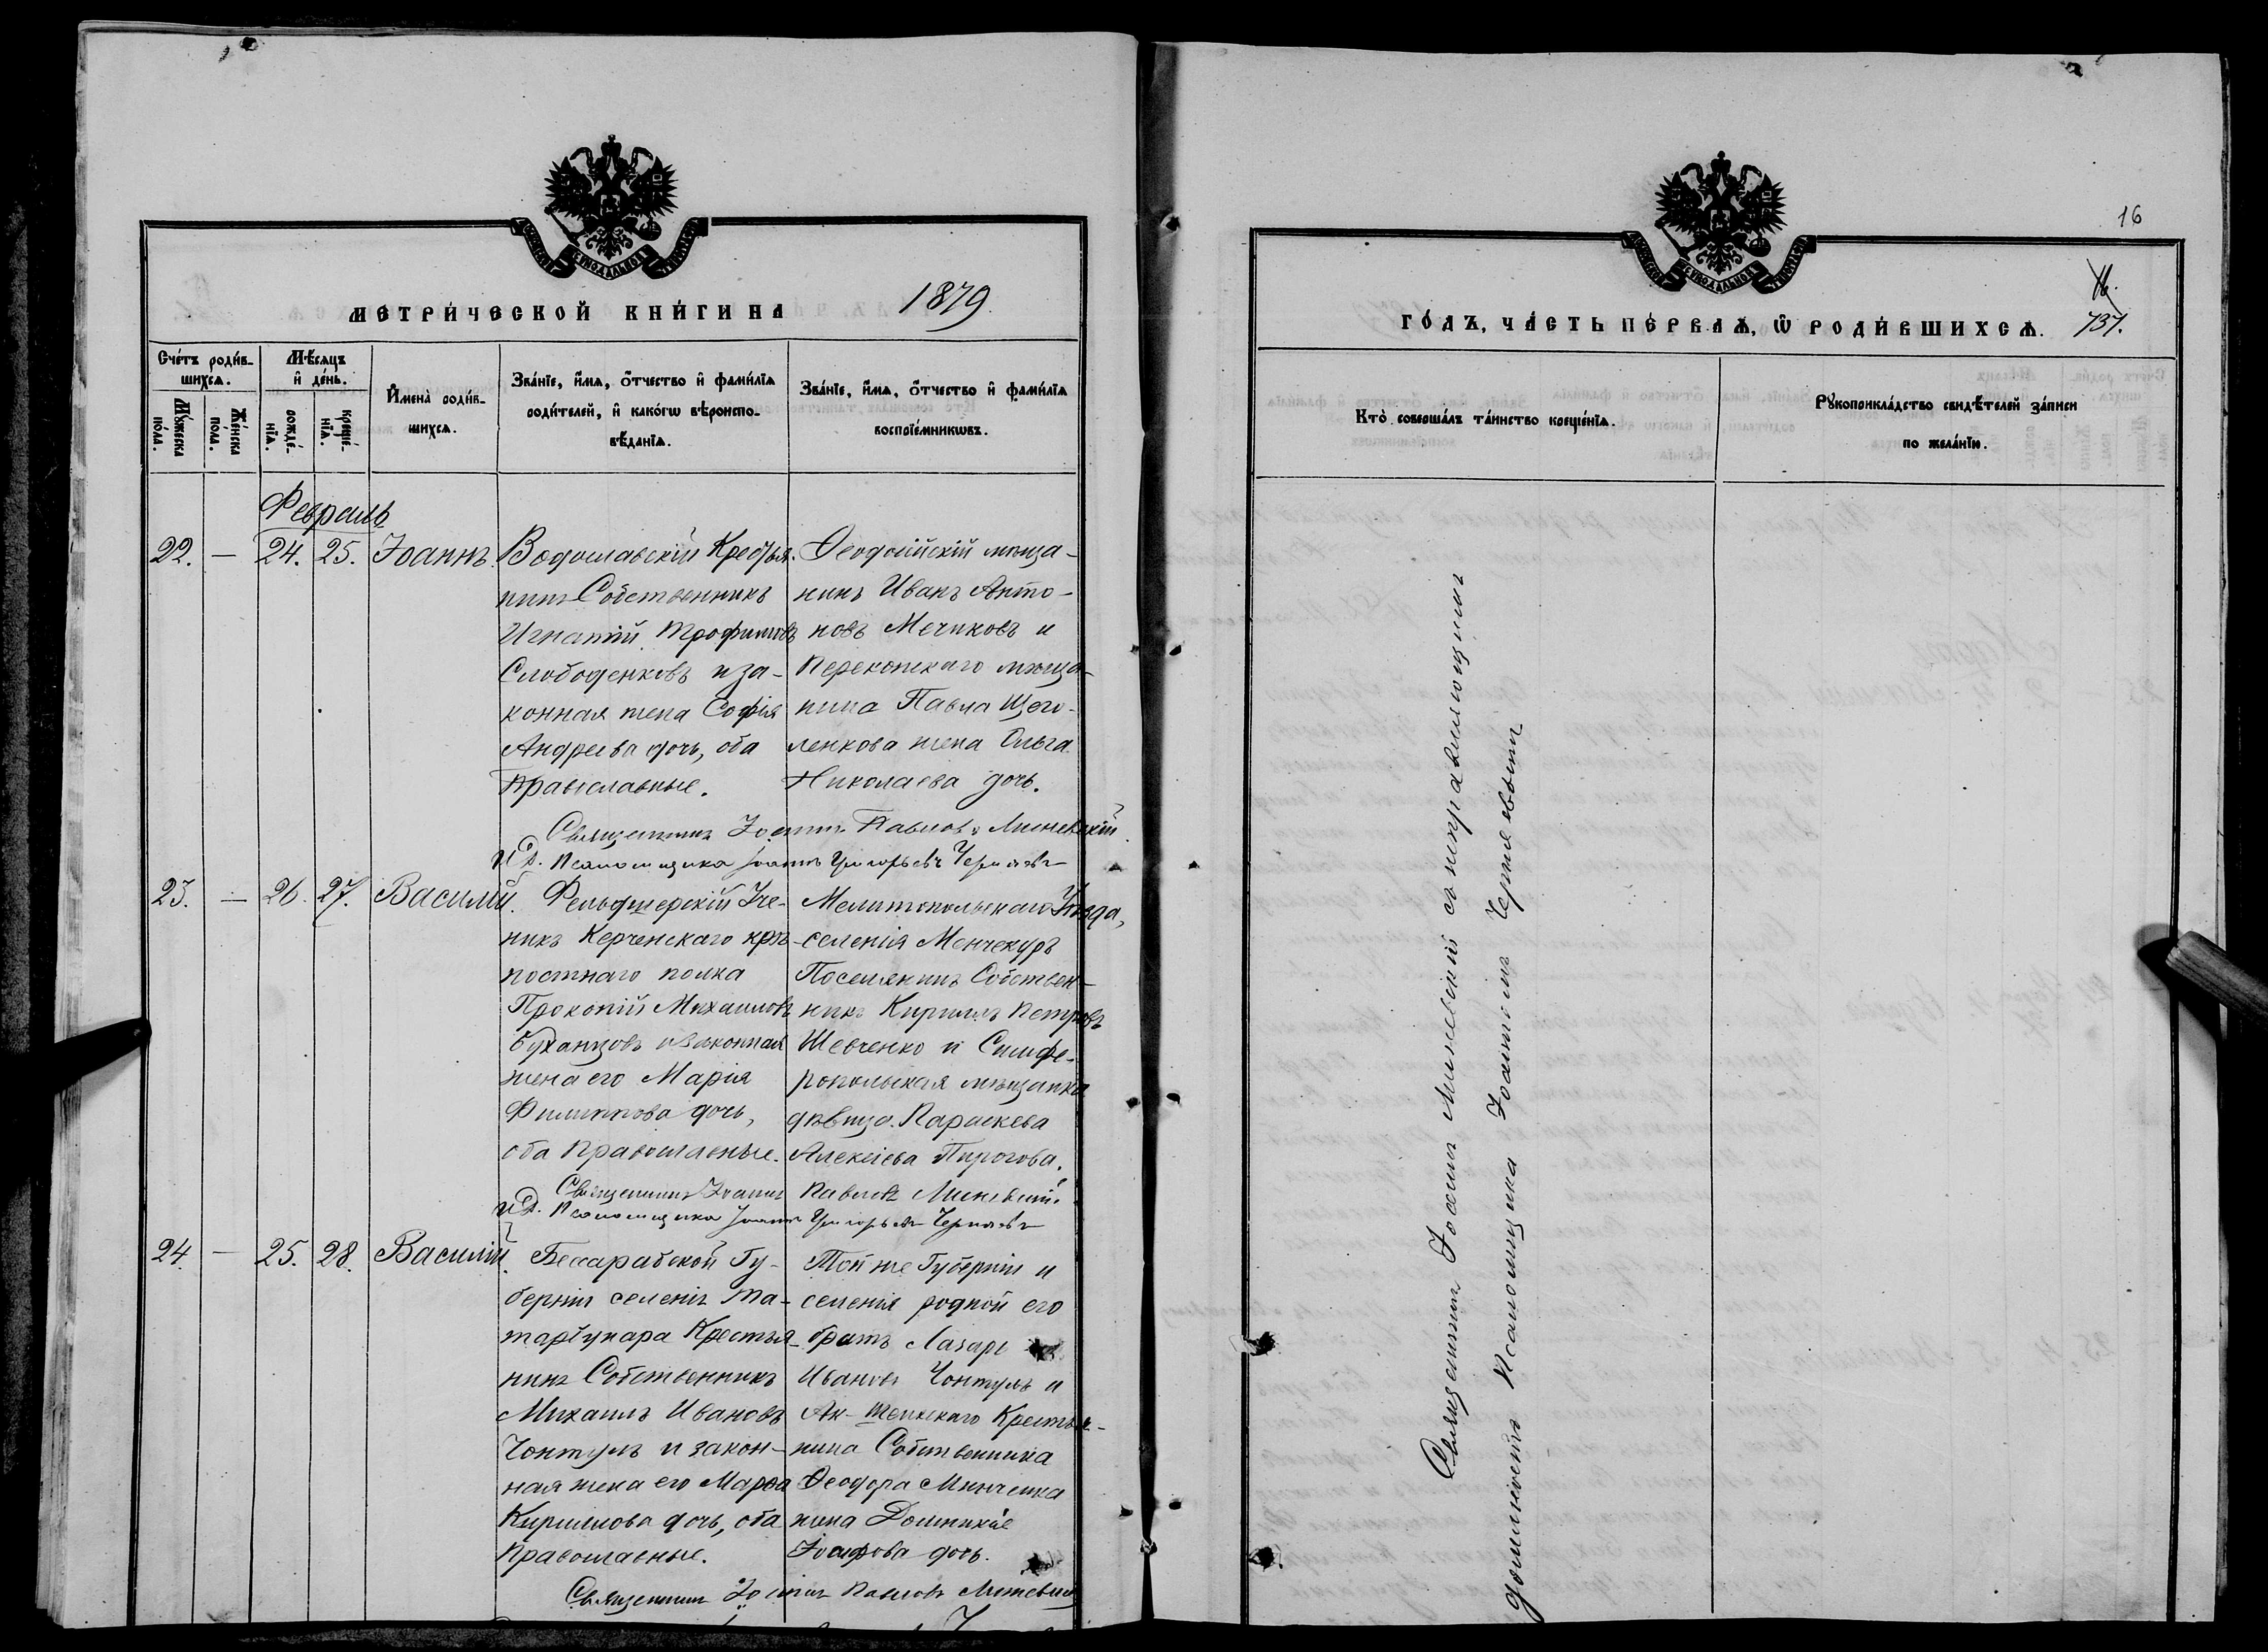 МЕТРИЧЕСКОЙ КНИГИ НА 1879
Счетъ родив-
шихся.
Мужеска
пола.
Женска
пола.
Мѣсяцъ
и день.
рожде-
нія.
креще-
нія.
Имена родив-
шихся.
Званіе, имя, отчество и фамилія
родителей, и какого вѣроиспо-
вѣданія.
Званіе, имя, отчество и фамилія
воспріемниковъ.
Февраль
22. — 24. 25. Іоаннъ.
Водославскій Крестья-
нинъ Собственникъ
Игнатій Трофимовъ
Слободенковъ и за-
конная жена Софія
Андреева дочь, оба
Православные.
Ѳеодосійскій мѣща-
нинъ Иванъ Анто-
новъ Мечиковъ и
Перекопскаго мѣща-
нина Павла Щего-
ленкова жена Ольга
Николаева дочь.
Священникъ Іоаннъ Павловъ
И.Д. Псаломщика Іоаннъ Григорьевъ Чернявъ
23. — 26. 27. Василій.
Фельдшерскій Уче-
никъ Керченскаго крѣ-
постнаго полка
Прокопій Михаиловъ
Буханцовъ и законная
жена его Марія
Филиппова дочь,
оба Православные.
Мелитопольскаго Уѣзда,
селенія Менчекуръ
Поселянинъ Собствен-
никъ Кириллъ Петровъ
Шевченко и Симфе-
ропольская мѣщанка
дѣвица Параскева
Алексіева Пирогова.
Священникъ Іоаннъ Павловъ
И.Д. Псаломщика Іоаннъ Григорьевъ Чернявъ
24. — 25. 28. Василій.
Бессарабской Гу-
берніи селенія Та-
Крестья-
нинъ Собственникъ
Михаилъ Ивановъ
Чонтулъ и закон-
ная жена его Марѳа
Кириллова дочь, оба
Православные.
Той же Губерніи и
селенія родной его
братъ Лазарь
Ивановъ Чонтулъ и
Ак-Шеикскаго Крестья-
нина Собственника
Ѳеодора Минченка
жена Домникіе
Іосифова дочь.
Священникъ Іоаннъ Павловъ
16
ГОДЪ, ЧАСТЬ ПЕРВАЯ, Ѿ РОДИВШИХСЯ.
16.
737.
Кто совершалъ таинство крещенія.
Рукоприкладство свидѣтелей записи
по желанію.
Священникъ Іоаннъ съ исправляющимъ
должность Псаломщика Іоанномъ Чернявымъ